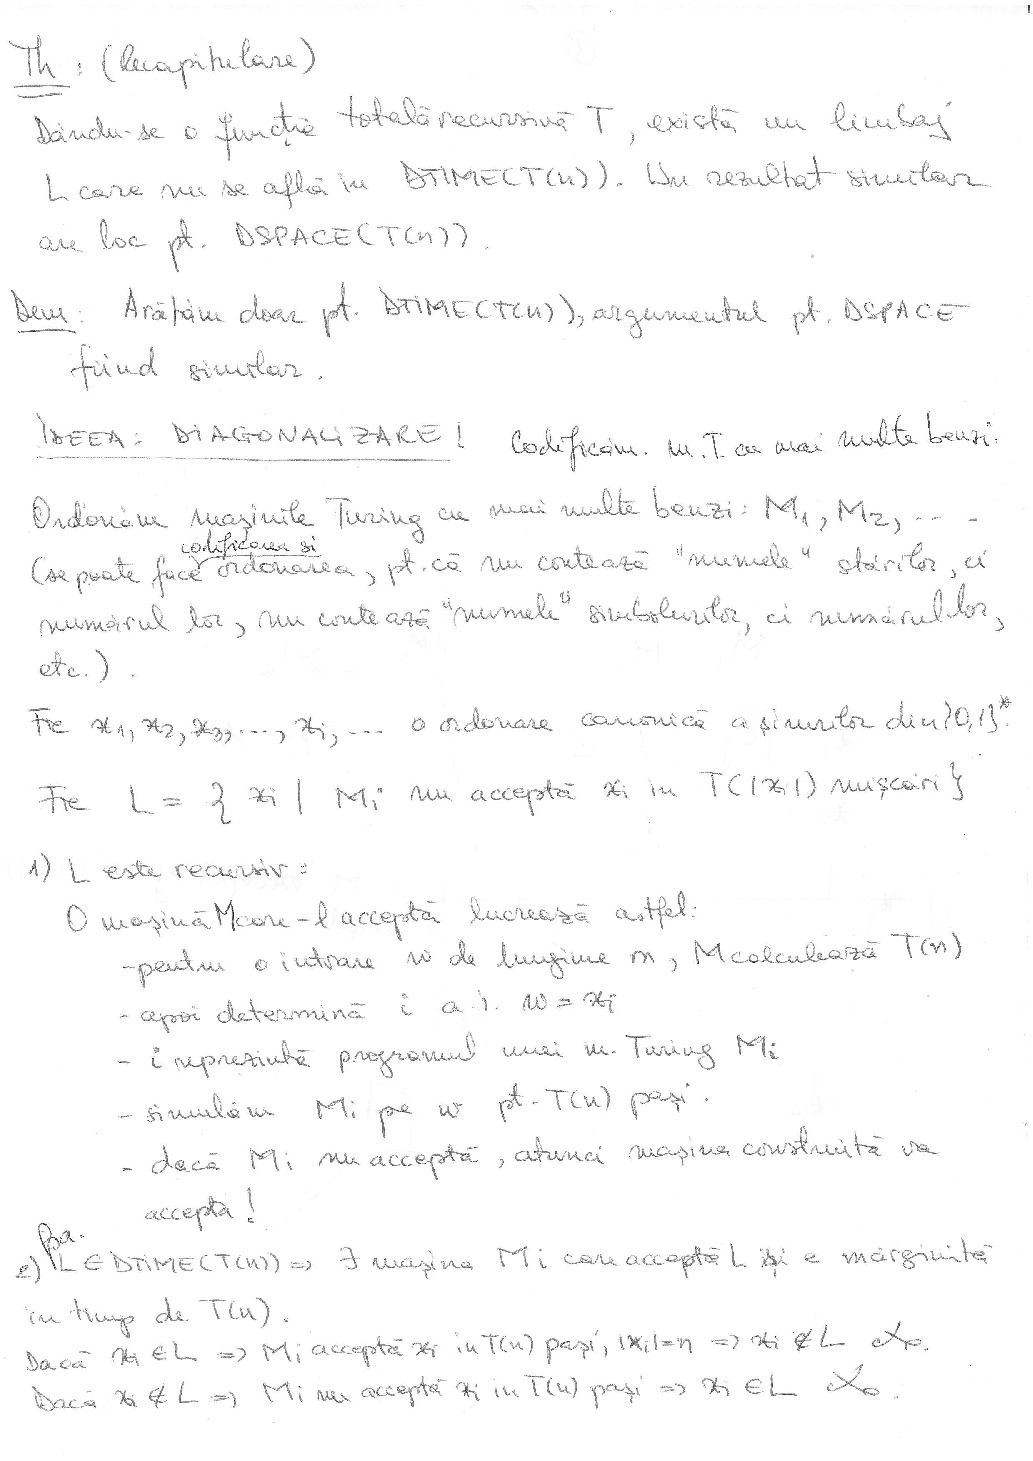 Th: (Recapitulare)
Dându-se o funcție totală recursivă T, există un limbaj
L care nu se află în DTIME(T(n)). Un rezultat similar
are loc pt. DSPACE(T(n)).
Dem: Arătăm doar pt. DTIME(T(n)), argumentul pt. DSPACE
fiind similar.
IDEEA: DIAGONALIZARE! Codificăm. m.T cu mai multe benzi.
Ordonăm mașinile Turing cu mai multe benzi: M1, M2, ...
codificarea și
(se poate face ordonarea, pt. că nu contează "numele" stărilor, ci
numărul lor, nu contează "numele" simbolurilor, ci numărul lor,
etc.).
Fie x1, x2, x3, ..., xi, ... o ordonare canonică a șirurilor din {0,1}*.
Fie L = { xi | Mi nu acceptă xi în T(|xi|) mișcări}
1) L este recursiv:
O mașină M care-l acceptă lucrează astfel:
- pentru o intrare w de lungime n, M calculează T(n)
- apoi determină i a.î. w = xi
- i reprezintă programul unei m. Turing Mi
- simulăm Mi pe w pt. T(n) pași.
- dacă Mi nu acceptă, atunci mașina construită va
accepta!
2) Pa. L ∈ DTIME(T(n)) => ∃ mașina Mi care acceptă L și e mărginită
în timp de T(n).
Dacă xi ∈ L => Mi acceptă xi în T(n) pași, |xi|=n => xi ∉ L
Dacă xi ∉ L => Mi nu acceptă xi în T(n) pași => xi ∈ L